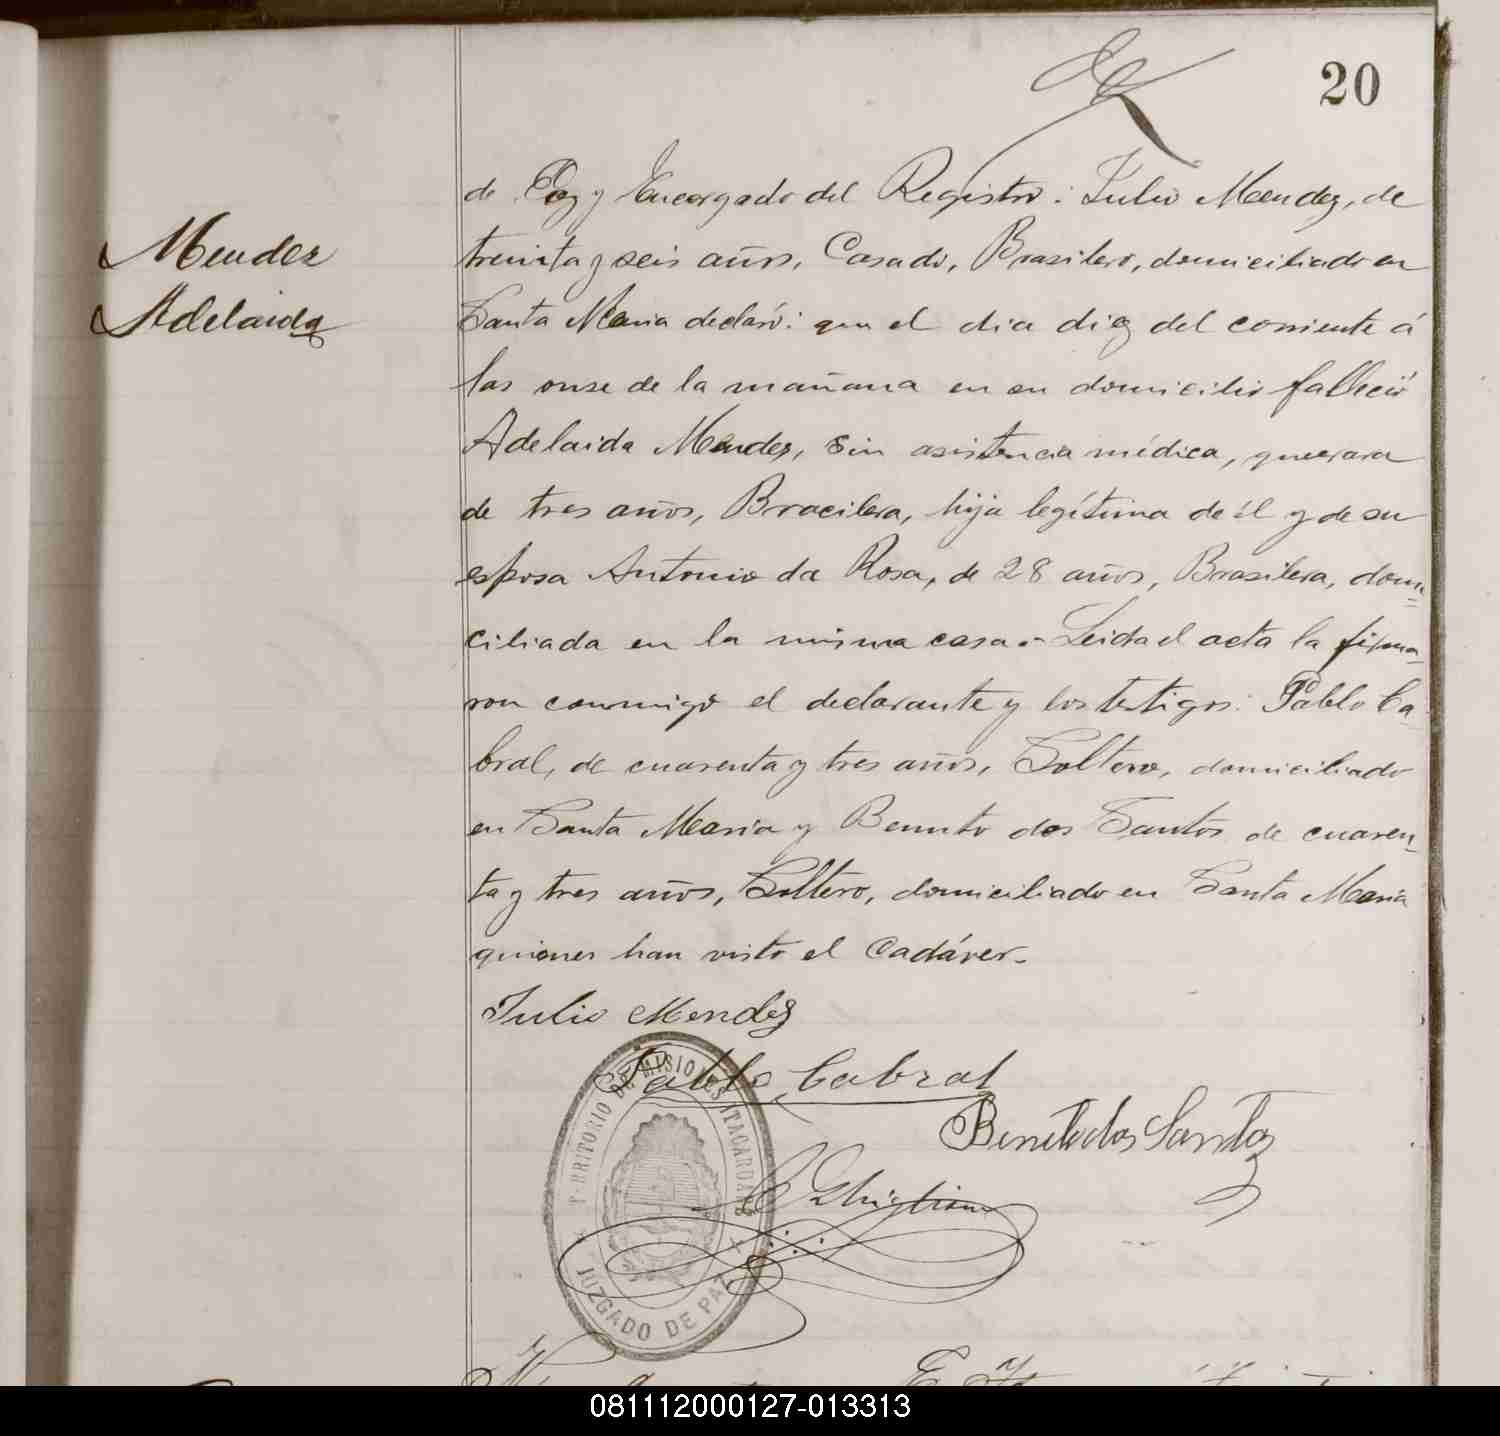 20
de Paz y Encargado del Registro: Julio Mendez, de
Mendez
Adelaida
treinta y seis años, Casado, Brasilero, domiciliado en
Santa Maria declaró: que el dia diez del corriente á
las onse de la mañana en su domicilio falleció
Adelaida Mendez, sin asistencia médica, que era
de tres años, Bracilera, hija legítima de él y de su
esposa Antonia da Rosa, de 28 años, Brasilera, domi=
ciliada en la misma casa.- Leida el acta la firma-
ron conmigo el declarante y los testigos: Pablo Ca-
bral, de cuarenta y tres años, Soltero, domiciliado
en Santa Maria y Benito dos Santos de cuaren-
ta y tres años, Soltero, domiciliado en Santa Maria
quienes han visto el Cadáver.-
Julio Mendez
Pablo Cabral
Benito dos Santos
TERRITORIO DE MISIONES
JUZGADO DE PAZ
081112000127-013313